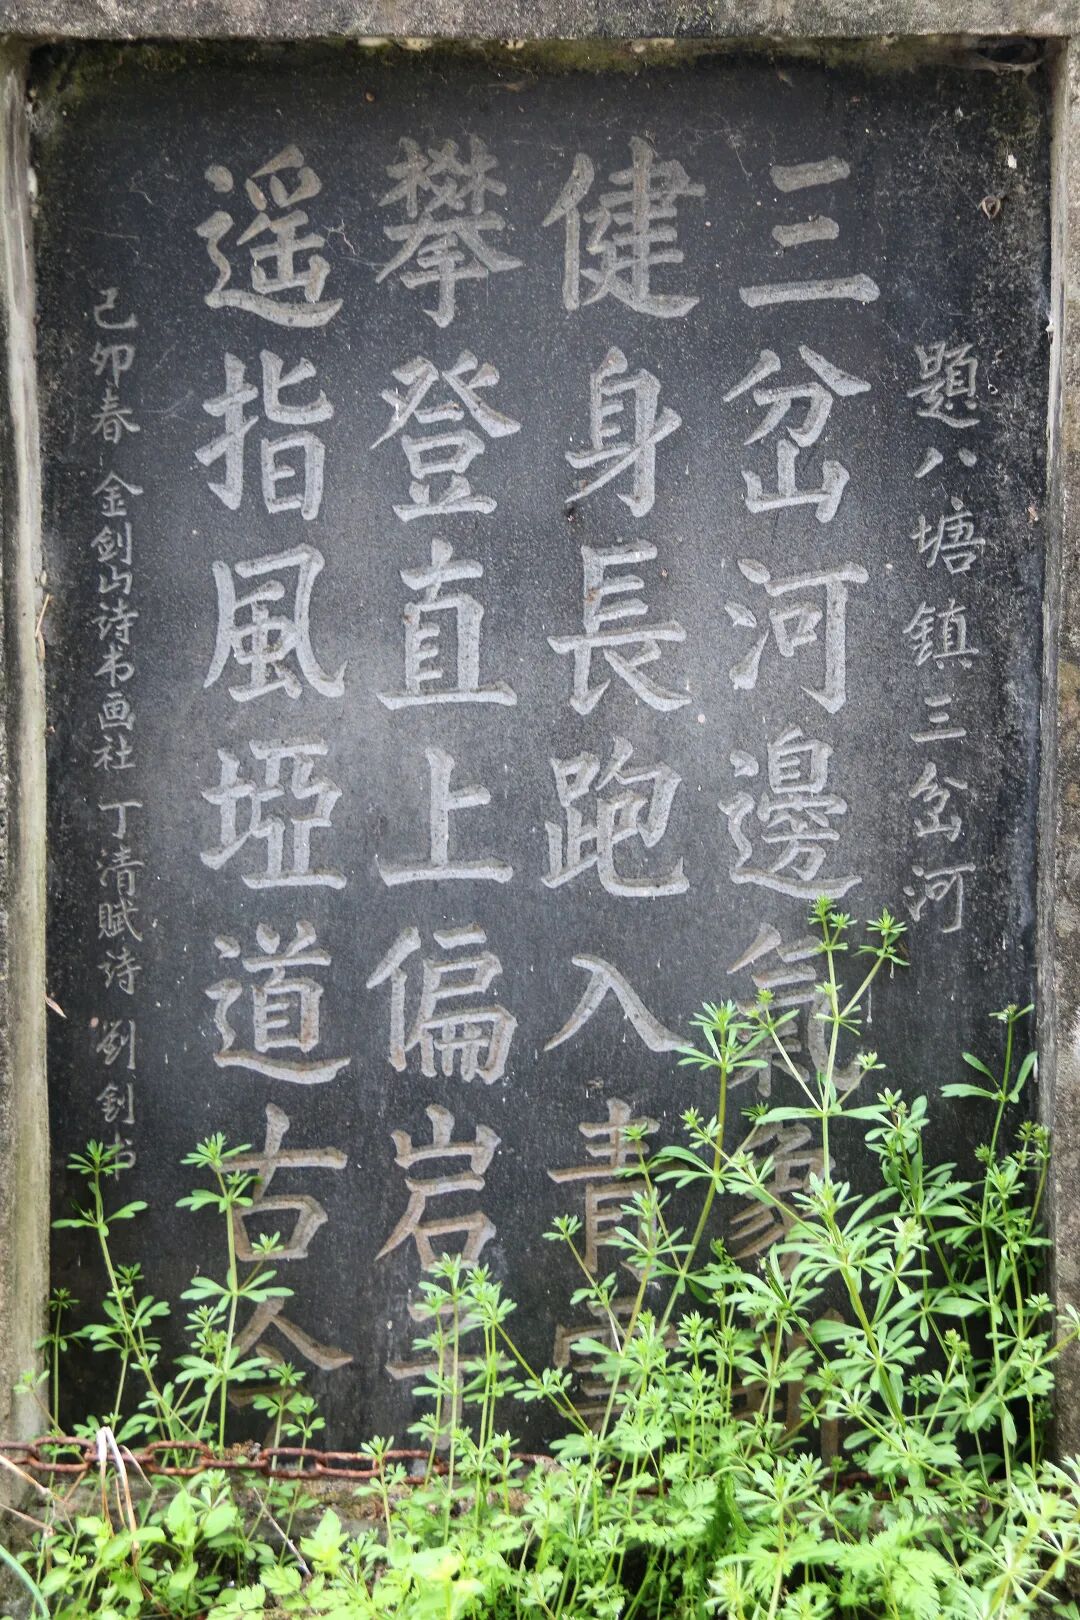 題八塘鎮三岔河
三岔河邊氣象
健身長跑入青雲
攀登直上偏岩
遥指風埡道古今
己卯春 金剑山诗书画社 丁清賦诗 劉釗书